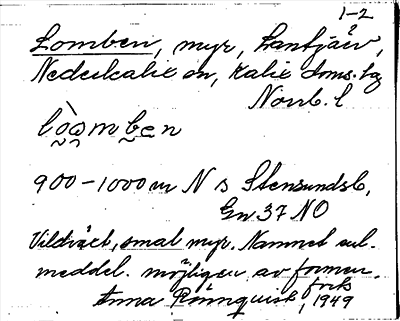 1-2
Lomben, myr, Lantjärv,
Nederkalix sn, Kalix doms. hg
Norrb. l
900-1000 m N s Stensundsb,
Gn 37 NO
Vildväxt, smal myr. Namnet enl.
meddel. möjligen av formen.
Anna 1949